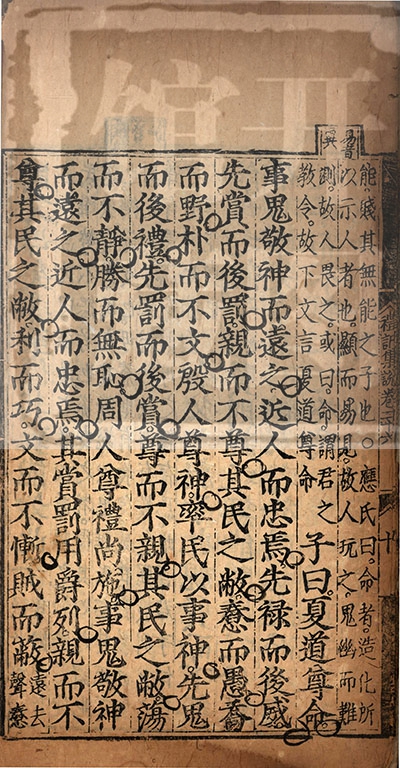 易音異
能賤其無能之子也。應氏曰。命者造化所
以示人者也。顯而易見。故人玩之。鬼幽而難
測。故人畏之。或曰。命謂君之
教令。故下文言夏道尊命
子曰。夏道尊命。
事鬼敬神而遠之。近人而忠焉。先祿而後威。
先賞而後罰。親而不尊。其民之敝。惷而愚。喬
而野。朴而不文。殷人尊神。率民以事神。先鬼
而後禮。先罰而後賞。尊而不親。其民之敝。蕩
而不靜。勝而無恥。周人尊禮尚施。事鬼敬神
而遠之。近人而忠焉。其賞罰用爵列。親而不
尊。其民之敝。利而巧。文而不慚。賊而蔽
遠去
聲惷